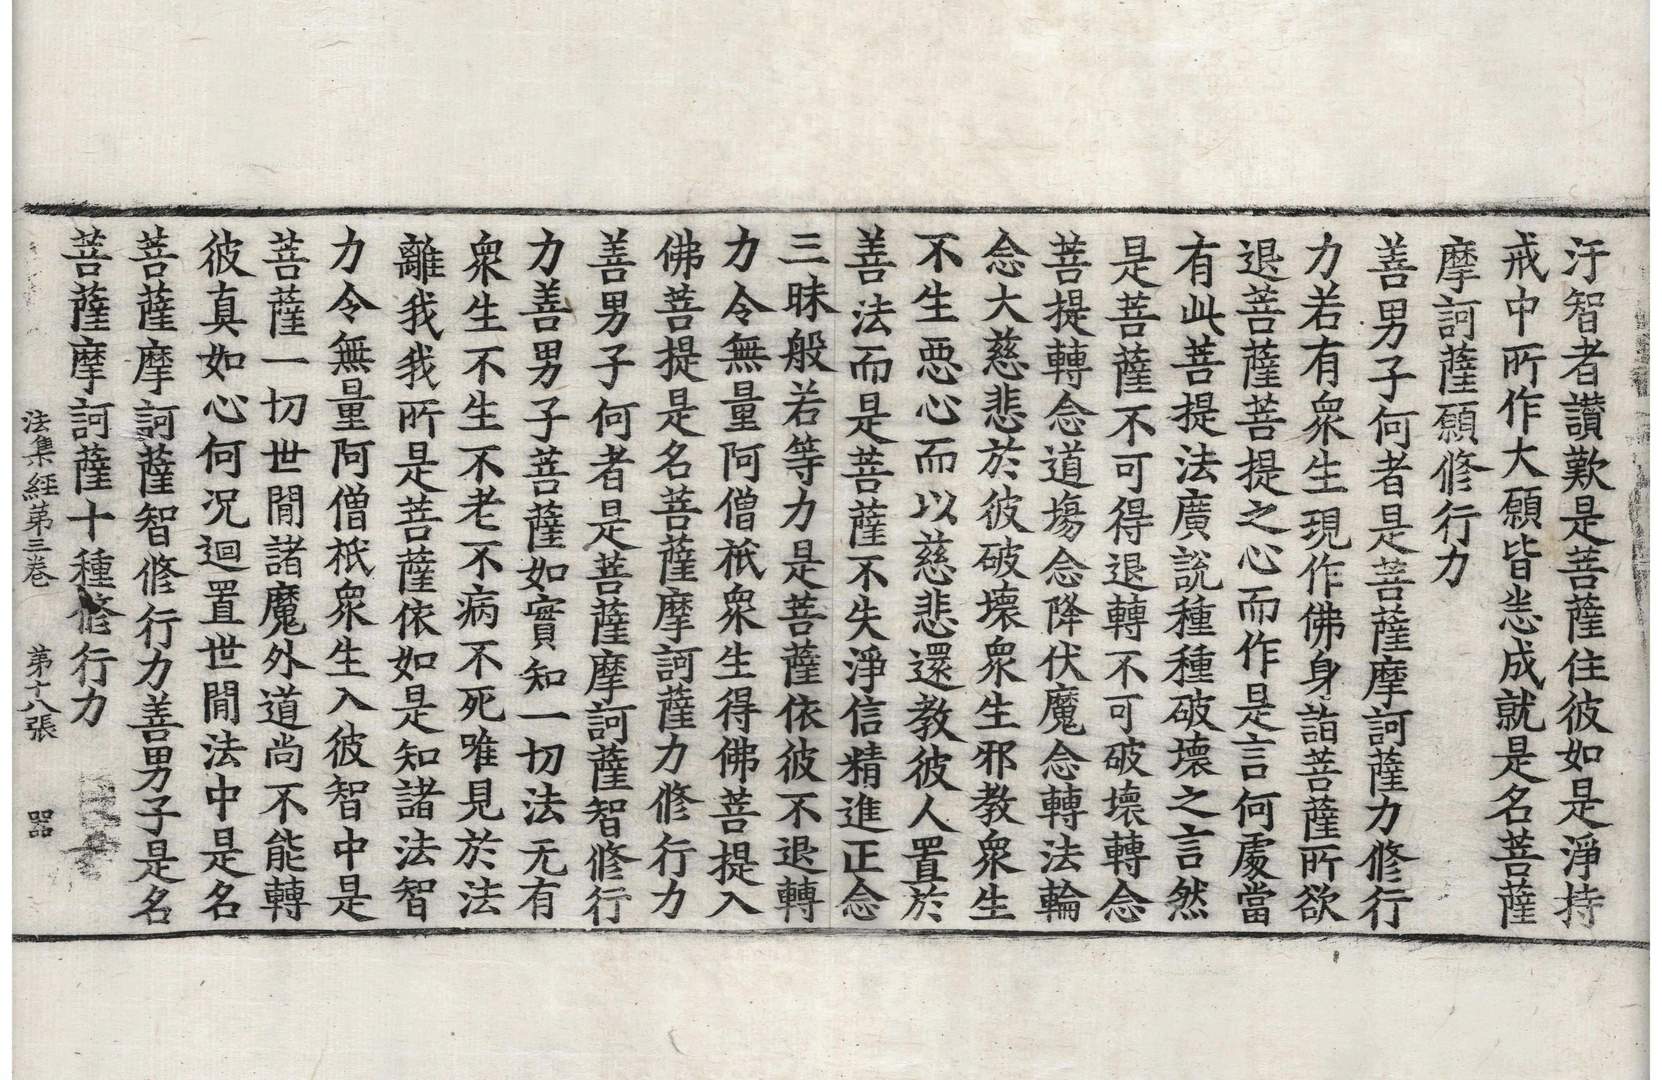 汙智者讚歎是菩薩住彼如是淨持
戒中所作大願皆悉成就是名菩薩
摩訶薩願修行力
善男子何者是菩薩摩訶薩力修行
力若有衆生現作佛身詣菩薩所欲
退菩薩菩提之心而作是言何處當
有此菩提法廣說種種破壞之言然
是菩薩不可得退轉不可破壞轉念
菩提轉念道場念降伏魔念轉法輪
念大慈悲於彼破壞衆生邪教衆生
不生惡心而以慈悲還教彼人置於
善法而是菩薩不失淨信精進正念
三昧般若等力是菩薩依彼不退轉
力令無量阿僧祇衆生得佛菩提入
佛菩提是名菩薩摩訶薩力修行力
善男子何者是菩薩摩訶薩智修行
力善男子菩薩如實知一切法无有
衆生不生不老不病不死唯見於法
離我我所是菩薩依如是知諸法智
力令無量阿僧祇衆生入彼智中是
菩薩一切世間諸魔外道尚不能轉
彼真如心何況迴置世間法中是名
菩薩摩訶薩智修行力善男子是名
菩薩摩訶薩十種修行力
法集經第三卷 第十八張 器